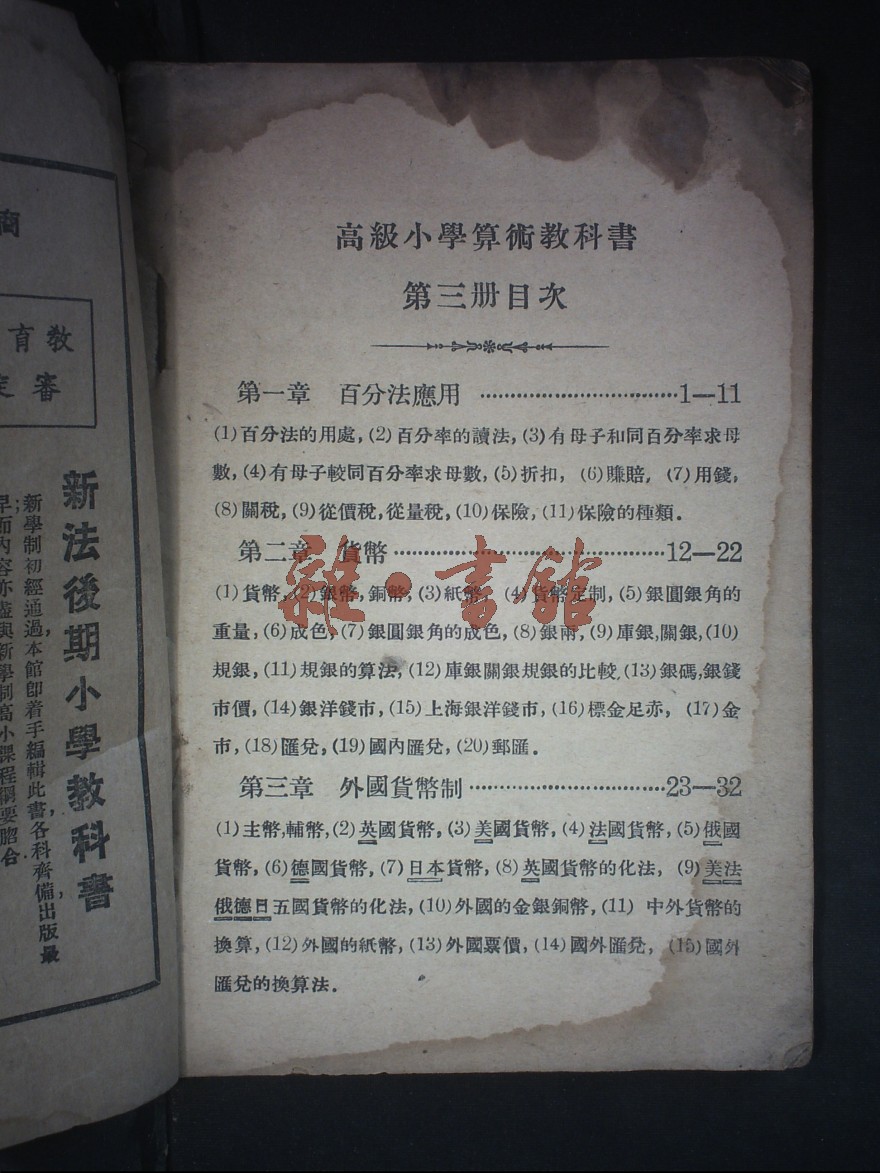 高級小學算術教科書
第三册目次
第一章 百分法應用 ……………………………1—11
(1)百分法的用處,(2)百分率的讀法,(3)有母子和同百分率求母
數,(4)有母子較同百分率求母數,(5)折扣, (6)賺賠, (7)用錢,
(8)關稅,(9)從價稅,從量稅,(10)保險,(11)保險的種類.
第二章 貨幣……………………………………12—22
(1)貨幣,(2)銀幣,銅幣,(3)紙幣, (4)貨幣定制,(5)銀圓銀角的
重量,(6)成色,(7)銀圓銀角的成色,(8)銀兩,(9)庫銀,關銀,(10)
規銀,(11)規銀的算法,(12)庫銀關銀規銀的比較,(13)銀碼,銀錢
市價,(14)銀洋錢市,(15)上海銀洋錢市,(16)標金足赤, (17)金
市,(18)匯兌,(19)國內匯兌,(20)郵匯.
第三章 外國貨幣制……………………………23—32
(1)主幣,輔幣,(2)英國貨幣,(3)美國貨幣,(4)法國貨幣,(5)俄國
貨幣,(6)德國貨幣,(7)日本貨幣,(8)英國貨幣的化法, (9)美法
俄德日五國貨幣的化法,(10)外國的金銀銅幣,(11) 中外貨幣的
換算,(12)外國的紙幣,(13)外國票價,(14)國外匯兌, (15)國外
匯兌的換算法.
雜·書館
商
教育
審定
新法後期小學教科書
新學制初經通過,本館卽着手編輯此書,各科齊備,出版最
早;而內容亦盡與新學制高小課程綱要脗合.